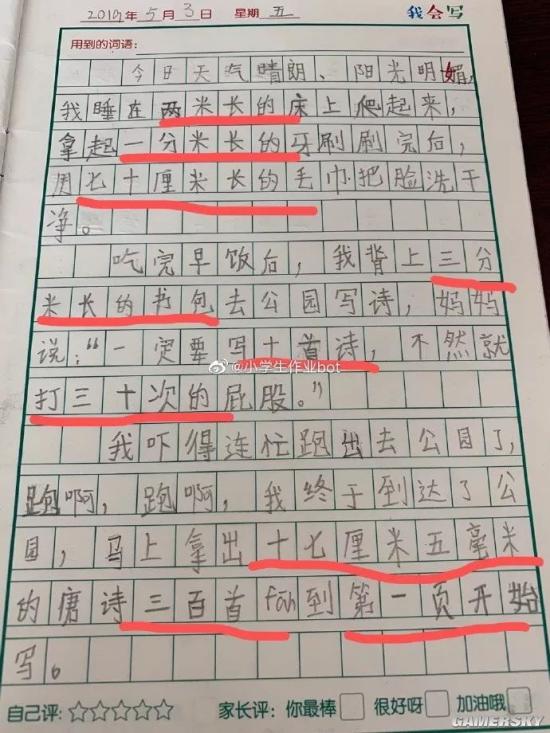 2019年5月3日 星期五 我会写
用到的词语:
今日天气晴朗、阳光明媚,
我睡在两米长的床上爬起来,
拿起一分米长的牙刷刷完后,
用七十厘米长的毛巾把脸洗干
净。
吃完早饭后,我背上三分
米长的书包去公园写诗,妈妈
说:“一定要写十首诗,不然就
打三十次的屁股。”
@小学生作业bot
我吓得连忙跑出去公园了,
跑啊,跑啊,我终于到达了公
园,马上拿出十七厘米五毫米
的唐诗三百首fān到第一页开始
写。
自己评:☆☆☆☆☆ 家长评:你最棒□ 很好呀□ 加油哦□
GAMERSKY